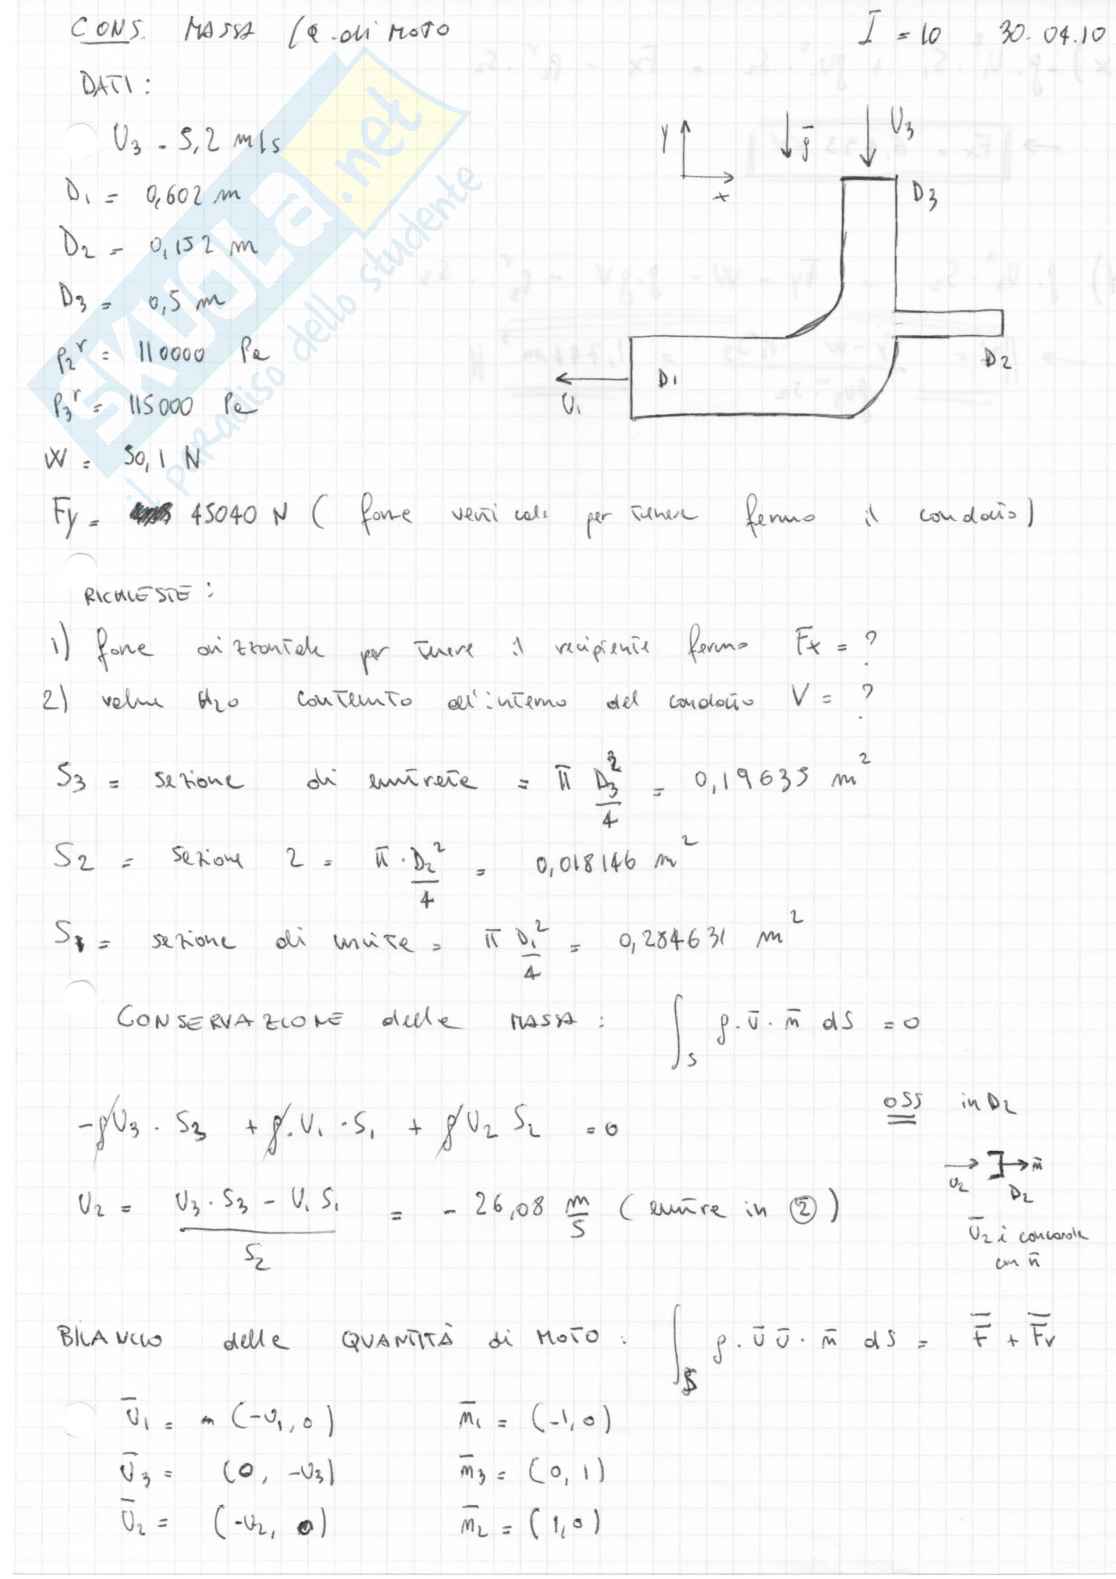 CONS. MASSA / Q. di MOTO
I = 10 30.04.10
DATI:
U3 = 5,2 m/s
D1 = 0,602 m
D2 = 0,152 m
D3 = 0,5 m
P2^r = 110000 Pa
P3^r = 115000 Pa
W = 50,1 N
Fy = 45040 N ( forze verticale per tenere fermo il condotto)
y
x
g
U3
D3
D2
D1
U1
SKUOLA.net
il paradiso dello studente
RICHIESTE:
1) forze orizzontale per tenere il recipiente fermo Fx = ?
2) volume H2O contenuto all'interno del condotto V = ?
S3 = sezione di entrata = π D3²/4 = 0,19635 m²
S2 = sezione 2 = π · D2²/4 = 0,018146 m²
S1 = sezione di uscita = π D1²/4 = 0,284631 m²
CONSERVAZIONE della MASSA : ∫_S ρ · ū · n̄ dS = 0
-ρU3 · S3 + ρ · U1 · S1 + ρ U2 S2 = 0
OSS in D2
U2 = (U3 · S3 - U1 S1)/S2 = - 26,08 m/s ( entra in ②)
U2 D2 n̄
Ū2 è concorde
con n̄
BILANCIO della QUANTITÀ di MOTO : ∫_S ρ · ū ū · n̄ dS = F̄ + F̄v
Ū1 = (-U1, 0) n̄1 = (-1, 0)
Ū3 = (0, -U3) n̄3 = (0, 1)
Ū2 = (-U2, 0) n̄2 = (1, 0)